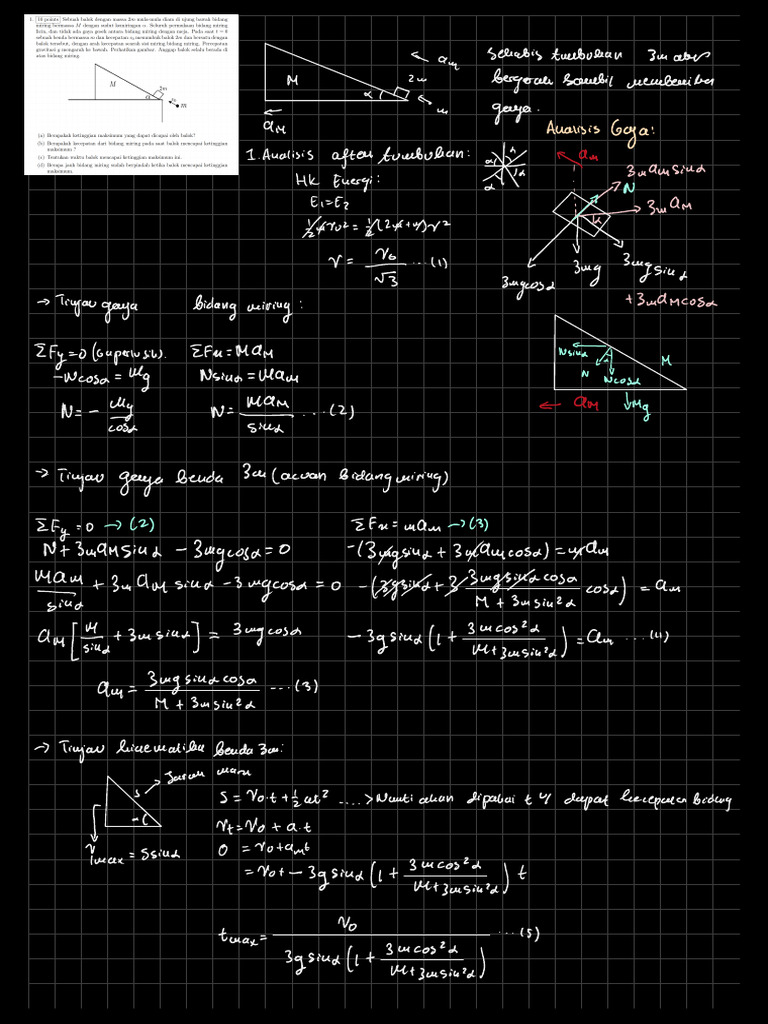 1. [10 points] Sebuah balok dengan massa 2m mula-mula diam di ujung bawah bidang
miring bermassa M dengan sudut kemiringan α. Seluruh permukaan bidang miring
licin, dan tidak ada gaya gesek antara bidang miring dengan meja. Pada saat t = 0
sebuah benda bermassa m dan kecepatan v₀ menumbuk balok 2m dan bersatu dengan
balok tersebut, dengan arah kecepatan searah sisi miring bidang miring. Percepatan
gravitasi g mengarah ke bawah. Perhatikan gambar. Anggap balok selalu berada di
atas bidang miring.
M
2m
α
v₀
m
(a) Berapakah ketinggian maksimum yang dapat dicapai oleh balok?
(b) Berapakah kecepatan dari bidang miring pada saat balok mencapai ketinggian
maksimum ?
(c) Tentukan waktu balok mencapai ketinggian maksimum ini.
(d) Berapa jauh bidang miring sudah berpindah ketika balok mencapai ketinggian
maksimum
M
α
2m
am
m
aM
Setelah tumbukan 3m akan
bergerak sambil memberikan
gaya.
Analisis Gaya:
α
α
α
α
am
3m aM sinα
N
3m aM
α
3mg cosα
3mg
3mg sinα
+ 3m aM cosα
N sinα
N
N cosα
M
aM
Mg
1. Analisis after tumbukan:
HK Energi:
E1 = E2
1/2 m v0² = 1/2 (2m+m) v²
v = v0/√3 ... (1)
→ Tinjau gaya bidang miring:
ΣFy = 0 (superlush). ΣFx = M aM
-N cosα = Mg N sinα = M aM
N = - Mg/cosα N = M aM/sinα ... (2)
→ Tinjau gaya benda 3m (acuan bidang miring)
ΣFy = 0 → (2) ΣFx = m am → (3)
N + 3m aM sinα - 3mg cosα = 0 -(3mg sinα + 3m aM cosα) = m am
M aM/sinα + 3m aM sinα - 3mg cosα = 0 -(3g sinα + 3 (3mg sinα cosα)/(M + 3m sin²α) cosα) = am
aM [M/sinα + 3m sinα] = 3mg cosα -3g sinα (1 + 3m cos²α/(M + 3m sin²α)) = am ... (4)
am = 3mg sinα cosα/(M + 3m sin²α) ... (3)
→ Tinjau kinematika benda 3m:
s
Jarak maks
α
Ymax = S sinα
S = v0.t + 1/2 at² ....> Nanti akan dipakai t u/ dapat kecepatan bidang
vt = v0 + a.t
0 = v0 + am t
= v0 + - 3g sinα (1 + 3m cos²α/(M + 3m sin²α)) t
tmax = v0/(3g sinα (1 + 3m cos²α/(M + 3m sin²α))) ... (5)